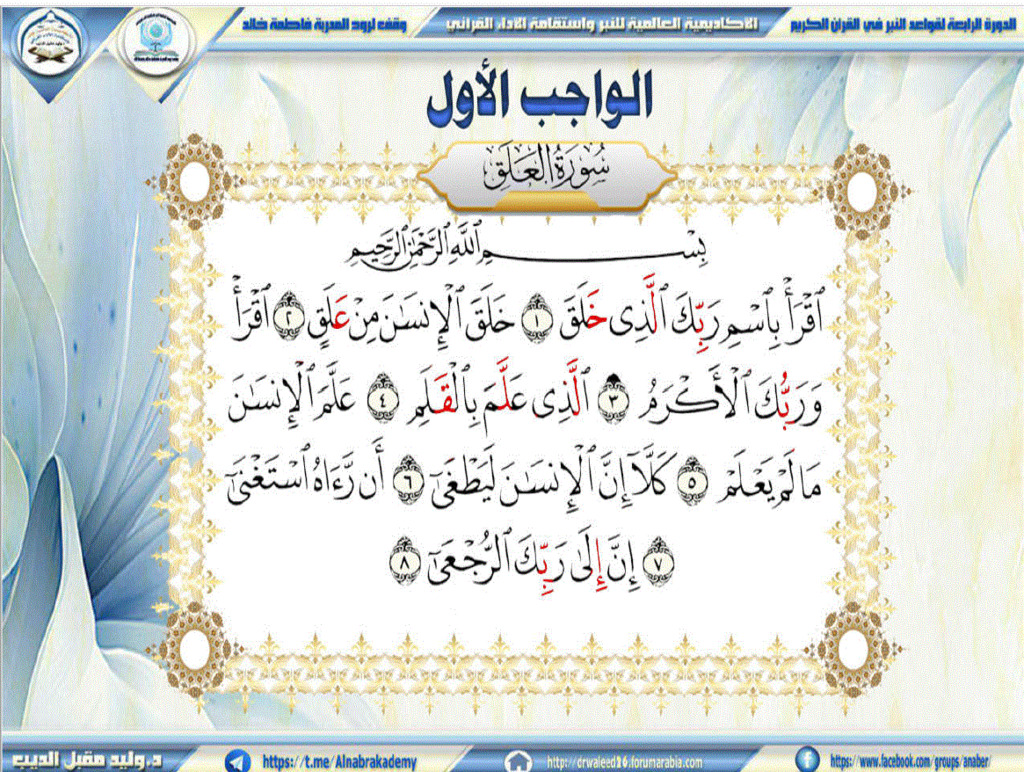 الدورة الرابعة لقواعد النبر في القران الكريم
الاكاديمية العالمية للنبر واستقامة الاداء القرآني
وقف لرود المدربة فاطمة خالد
الواجب الأول
سُورَةُ العَلَقِ
بِسْمِ ٱللَّهِ ٱلرَّحْمَٰنِ ٱلرَّحِيمِ
ٱقْرَأْ بِٱسْمِ رَبِّكَ ٱلَّذِى خَلَقَ ١ خَلَقَ ٱلْإِنسَٰنَ مِنْ عَلَقٍ ٢ ٱقْرَأْ
وَرَبُّكَ ٱلْأَكْرَمُ ٣ ٱلَّذِى عَلَّمَ بِٱلْقَلَمِ ٤ عَلَّمَ ٱلْإِنسَٰنَ
مَا لَمْ يَعْلَمْ ٥ كَلَّآ إِنَّ ٱلْإِنسَٰنَ لَيَطْغَىٰٓ ٦ أَن رَّءَاهُ ٱسْتَغْنَىٰٓ
٧ إِنَّ إِلَىٰ رَبِّكَ ٱلرُّجْعَىٰٓ ٨
د. وليد مقبل الديب
https://t.me/Alnabrakademy
http://drwaleed26.forumarabia.com
https://www.facebook.com/groups/anaber/